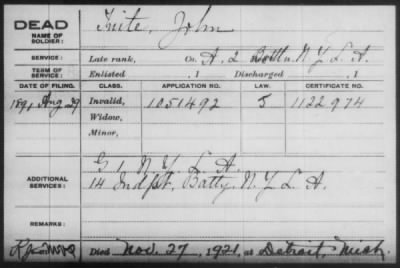 DEAD Tuite, John
NAME OF SOLDIER:
SERVICE: Late rank, Co. A, 2 Battln. N.Y. L. A.
TERM OF SERVICE: Enlisted , 1 Discharged , 1
DATE OF FILING. CLASS. APPLICATION NO. LAW. CERTIFICATE NO.
1891 Aug. 29 Invalid, 1051492 S 1122974
Widow,
Minor,
ADDITIONAL SERVICES: G 1, N.Y. L. A.
14 Indpt. Batty. N.Y. L. A.
REMARKS:
Died Nov. 27, 1921, at Detroit, Mich.